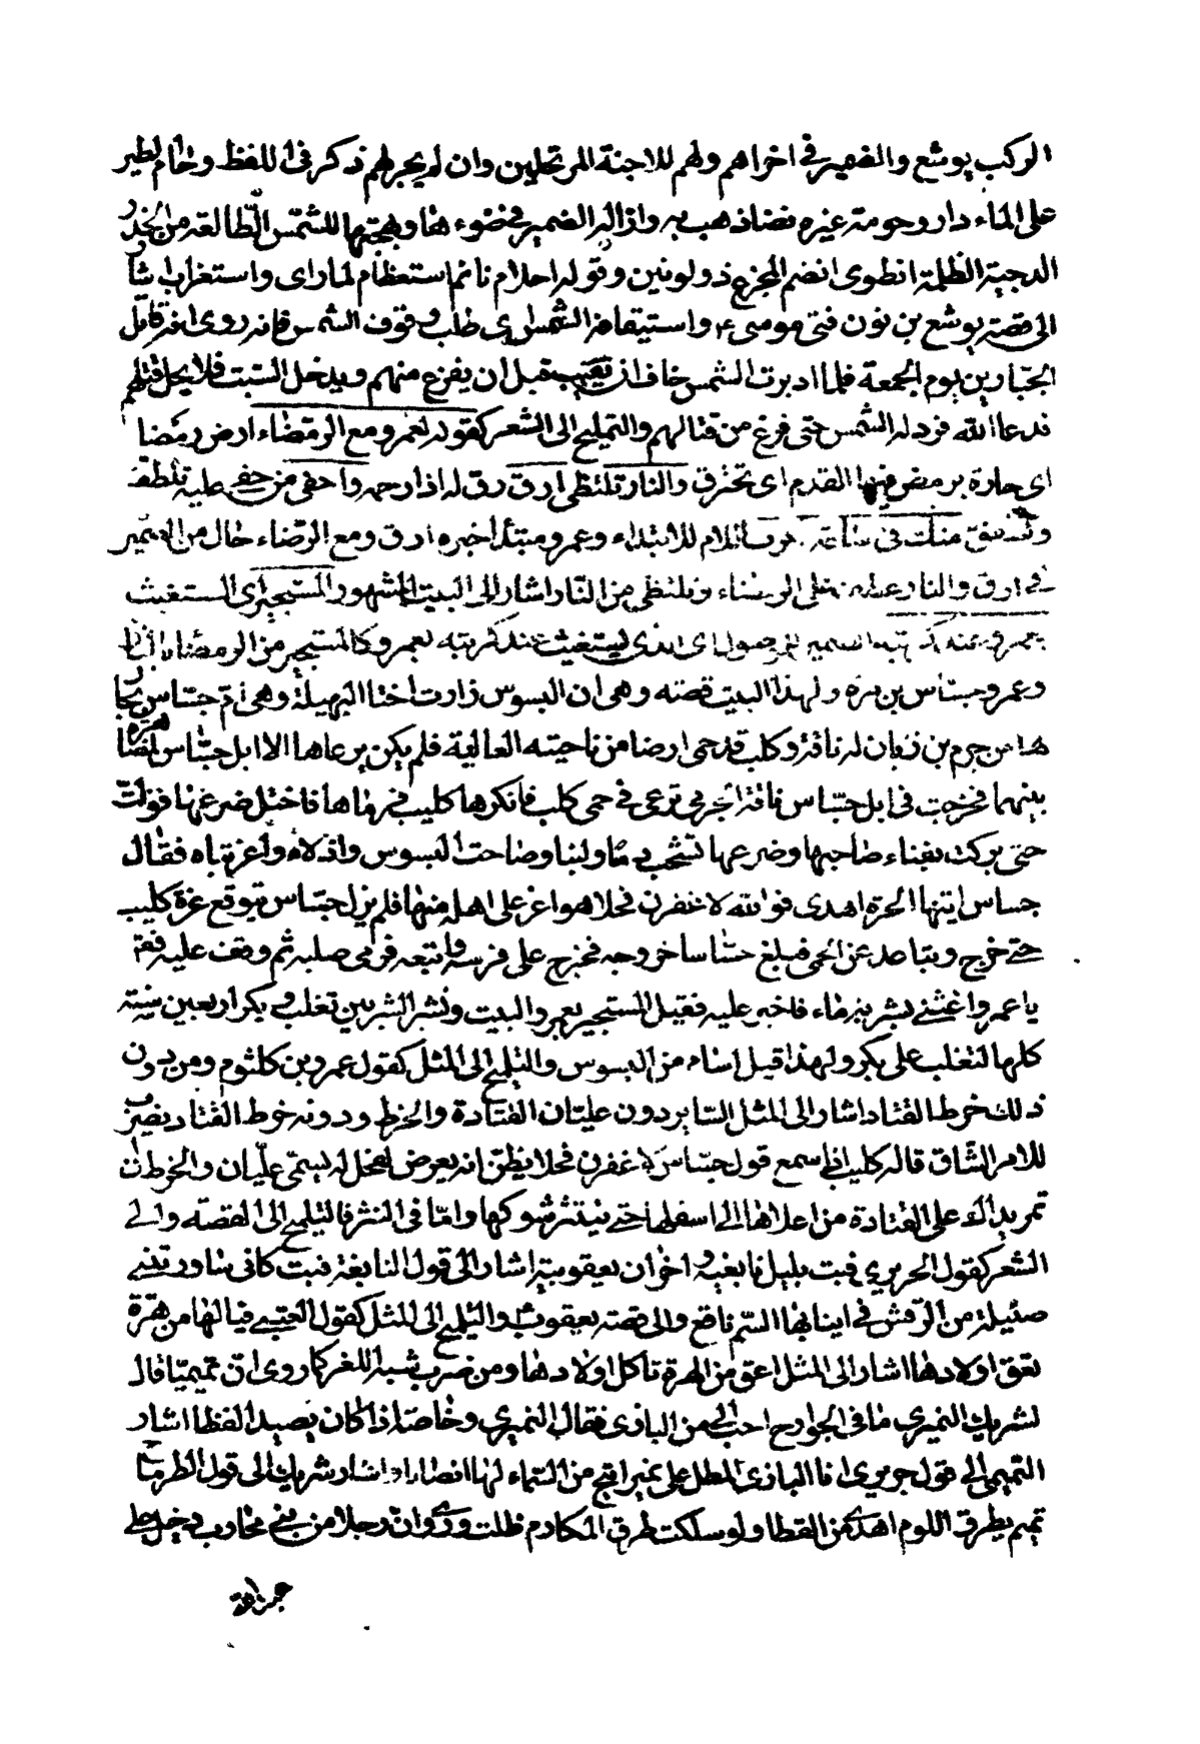 الركب يوشع والضمير في اخراهم ولهم للاجنة المرتحلين وان لم يجر لهم ذكر في اللفظ وحام الطير
على الماء دار وحومته غيره نضاذهب به وازاله الضمير في ضوءها وبهجتها للشمس الطالعة من الخدر
الدجية الظلمة انطوى انضم المجزع ذو لونين وقوله احلام نائم استعظام لما راى واستغراب اشار
الى قصة يوشع بن نون فتى موسى ع واستيقافه الشمس اى طلب وقوف الشمس فانه روى انه قاتل
الجبارين يوم الجمعة فلما ادبرت الشمس خاف ان تغيب قبل ان يفرغ منهم ويدخل السبت فلا يحل قتلهم
فدعا الله فرد له الشمس حتى فرغ من قتالهم والتمليح الى الشعر كقوله لعمرو مع الرمضاء ارض رمضا
اى حارة يرمض فيها القدم اى تحترق والنار تلتظى ارق رق له اذا رحمه واحفى من حفى عليه تلطف
وتشفق منك في ساعة اللام للابتداء وعمرو مبتدأ خبره ارق ومع الرمضاء حال من الضمير
في ارق والنار عطف على الرمضاء وتلتظى من النار اشار الى البيت المشهور المستجير اى المستغيث
بعمرو عند كربته الضمير للموصول اى الذى يستغيث عند كربته بعمرو كالمستجير من الرمضاء بالنار
وعمرو جساس بن مرة ولهذا البيت قصة وهى ان البسوس زارت اختها الهيلة وهى ام جساس بجار
لها من جرم بن زبان له ناقة وكليب قد حمى ارضا من ناحيته العالية فلم يكن يرعاها الا ابل جساس لمصاهرة
بينهما فخرجت في ابل جساس ناقة الجرمى ترعى في حمى كليب فانكرها كليب فرماها فاختل ضرعها فولت
حتى بركت بفناء صاحبها وضرعها تشخب دما ولبنا وصاحت البسوس واذلاه واغربتاه فقال
جساس ايتها الحرة اهدى فوالله لاعقرن فحلا هو اعز على اهله منها فلم يزل جساس يتوقع غرة كليب
حتى خرج وتباعد عن الحمى فبلغ جساسا خروجه فخرج على فرسه واتبعه فرمى صلبه ثم وقف عليه فقا
يا عمرو اغثنى بشربة ماء فاجهز عليه فقيل المستجير بعمرو البيت ونشب الشر بين تغلب وبكر اربعين سنة
كلها لتغلب على بكر ولهذا قيل اشام من البسوس والتمليح الى المثل كقول عمرو بن كلثوم ومن دون
ذلك خرط القتاد اشار الى المثل السائر دون عليان القتادة والخرط ودونه خرط القتاد يضرب
للامر الشاق قاله كليب اذ سمع قول جساس لاعقرن فحلا يظن انه يعرض لفحل له يسمى عليان والخرط ان
تمر يدك على القتادة من اعلاها الى اسفلها حتى ينتثر شوكها واما في النثر فالتمليح الى القصة والى
الشعر كقول الحريرى فبت بليلة نابغية واحزان يعقوبية اشار الى قول النابغة فبت كانى ساورتنى
ضئيلة من الرقش في انيابها السم ناقع والى قصة يعقوب ع والتمليح الى المثل كقول العتبى فيا لها من هرة
تعق اولادها اشار الى المثل اعق من الهرة تاكل اولادها ومن ضرب شبه اللغز كما روى ان تميميا قال
لشريك النميرى ما في الجوارح احب الى من البازى فقال النميرى وخاصة اذا كان يصيد القطا اشار
التميمى الى قول جرير انا البازى المطل على نمير اتيح من السماء لها انصبابا واشار شريك الى قول الطرماح
تميم بطرق اللوم اهدى من القطا ولو سلكت طرق المكارم ظلت وروى ان رجلا من بنى محارب دخل على